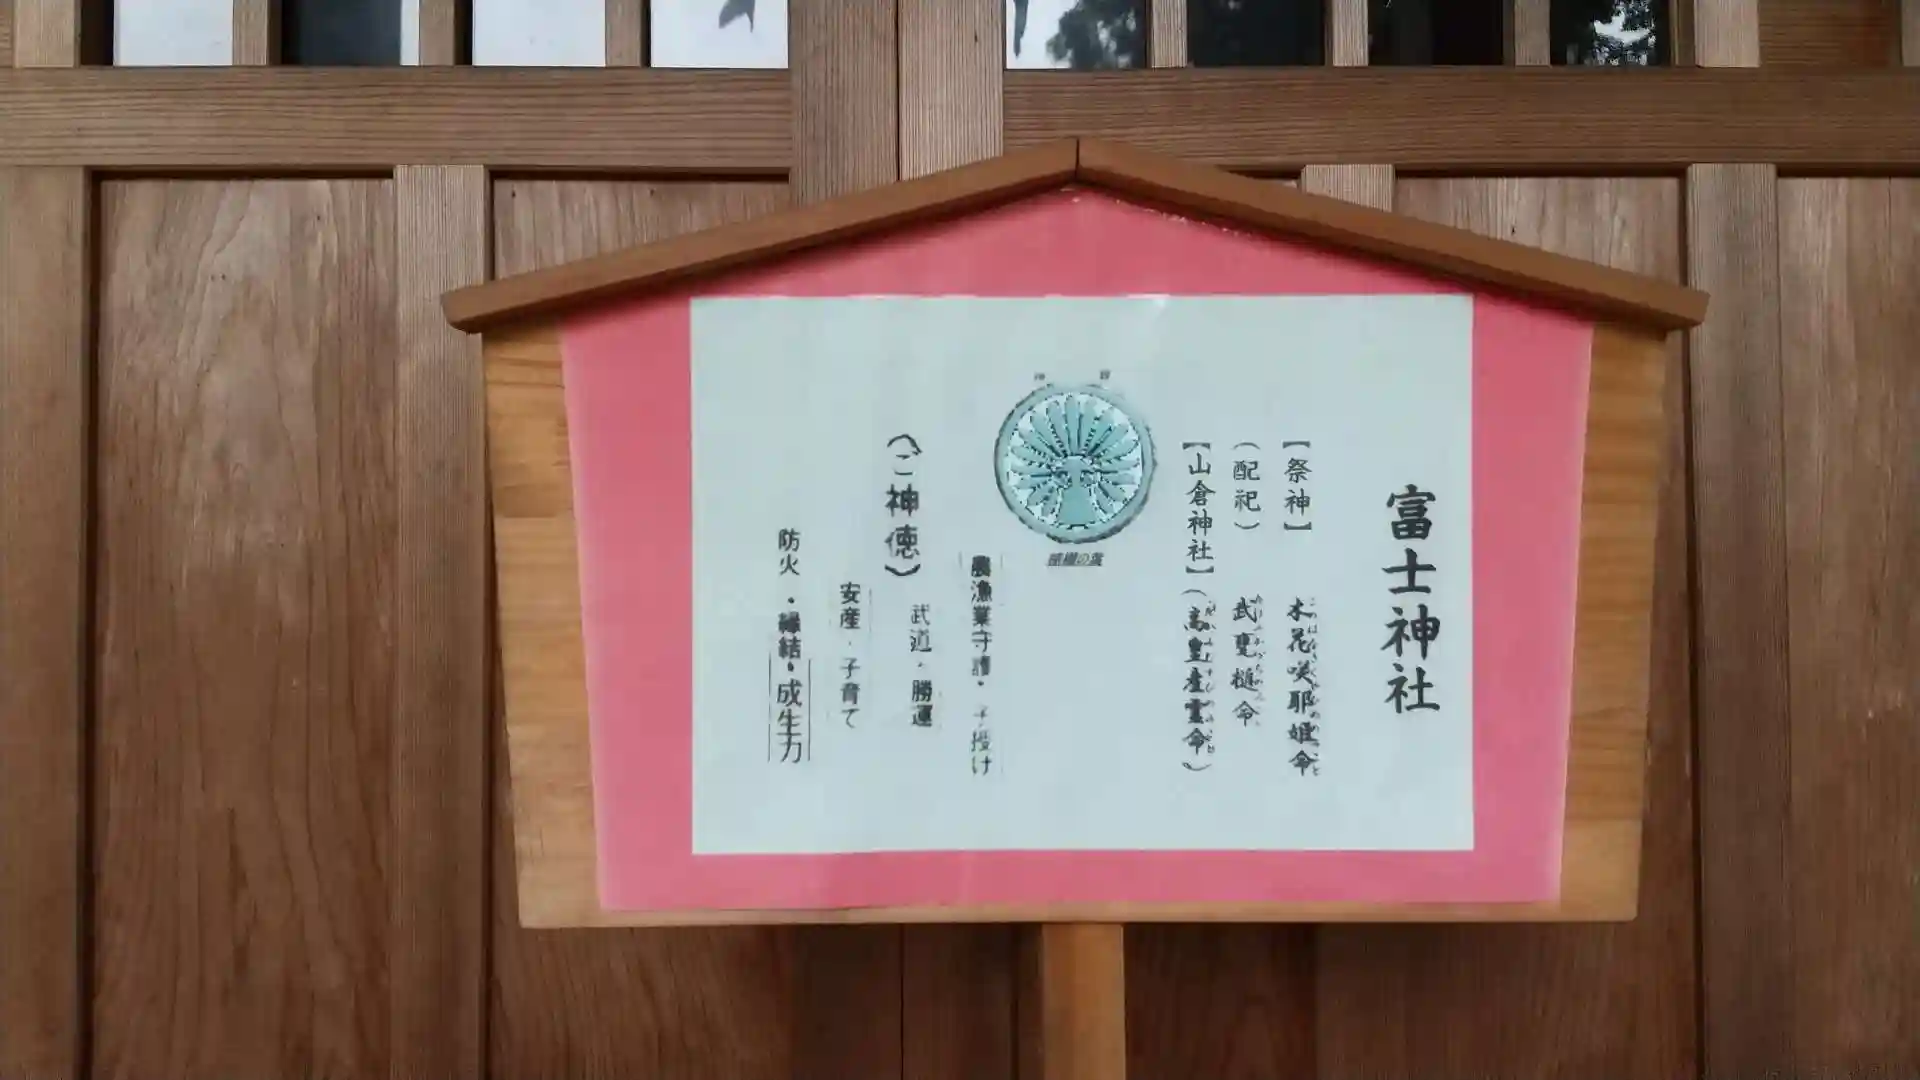 富士神社
【祭神】 木花咲耶姫命
(配祀) 武甕槌命
【山倉神社】(高皇産霊命)
農漁業守護・子授け
(ご神徳) 武道・勝運
安産・子育て
防火・縁結・成生力